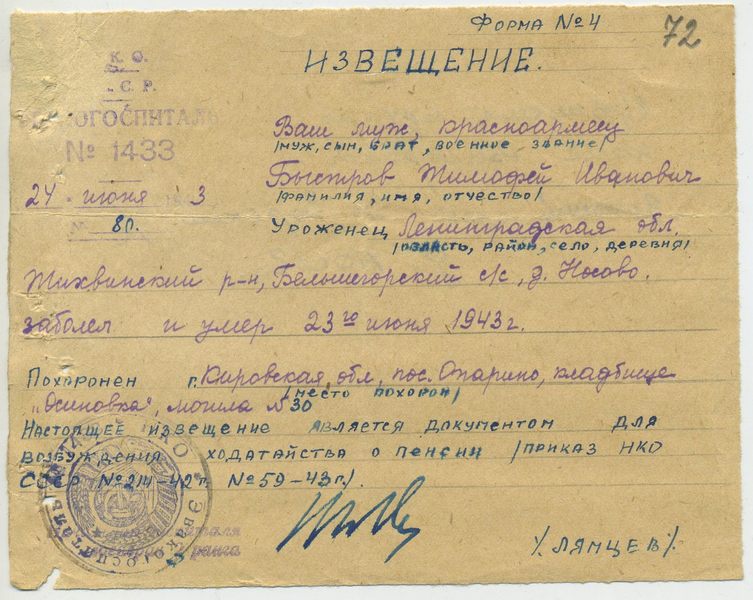 Форма № 4
72
К. О.
С. Р.
ОГОСПИТАЛЬ
№ 1433
ИЗВЕЩЕНИЕ.
Ваш муж, красноармеец
/муж, сын, брат, военное звание/
24 июня 3
Быстров Тимофей Иванович
/фамилия, имя, отчество/
№ 80.
Уроженец Ленинградская обл.
/область, район, село, деревня/
Тихвинский р-н, Бельшегорский с/с, д. Носово.
заболел и умер 23го июня 1943г.
Похоронен г. Кировская обл, пос. Опарино, кладбище
/место похорон/
"Осиновка", могила № 30
Настоящее извещение является документом для
возбуждения ходатайства о пенсии /приказ НКО
СССР № 214-42г. № 59-43г/.
ранга
Эвакогоспиталь
/Лямцев/.